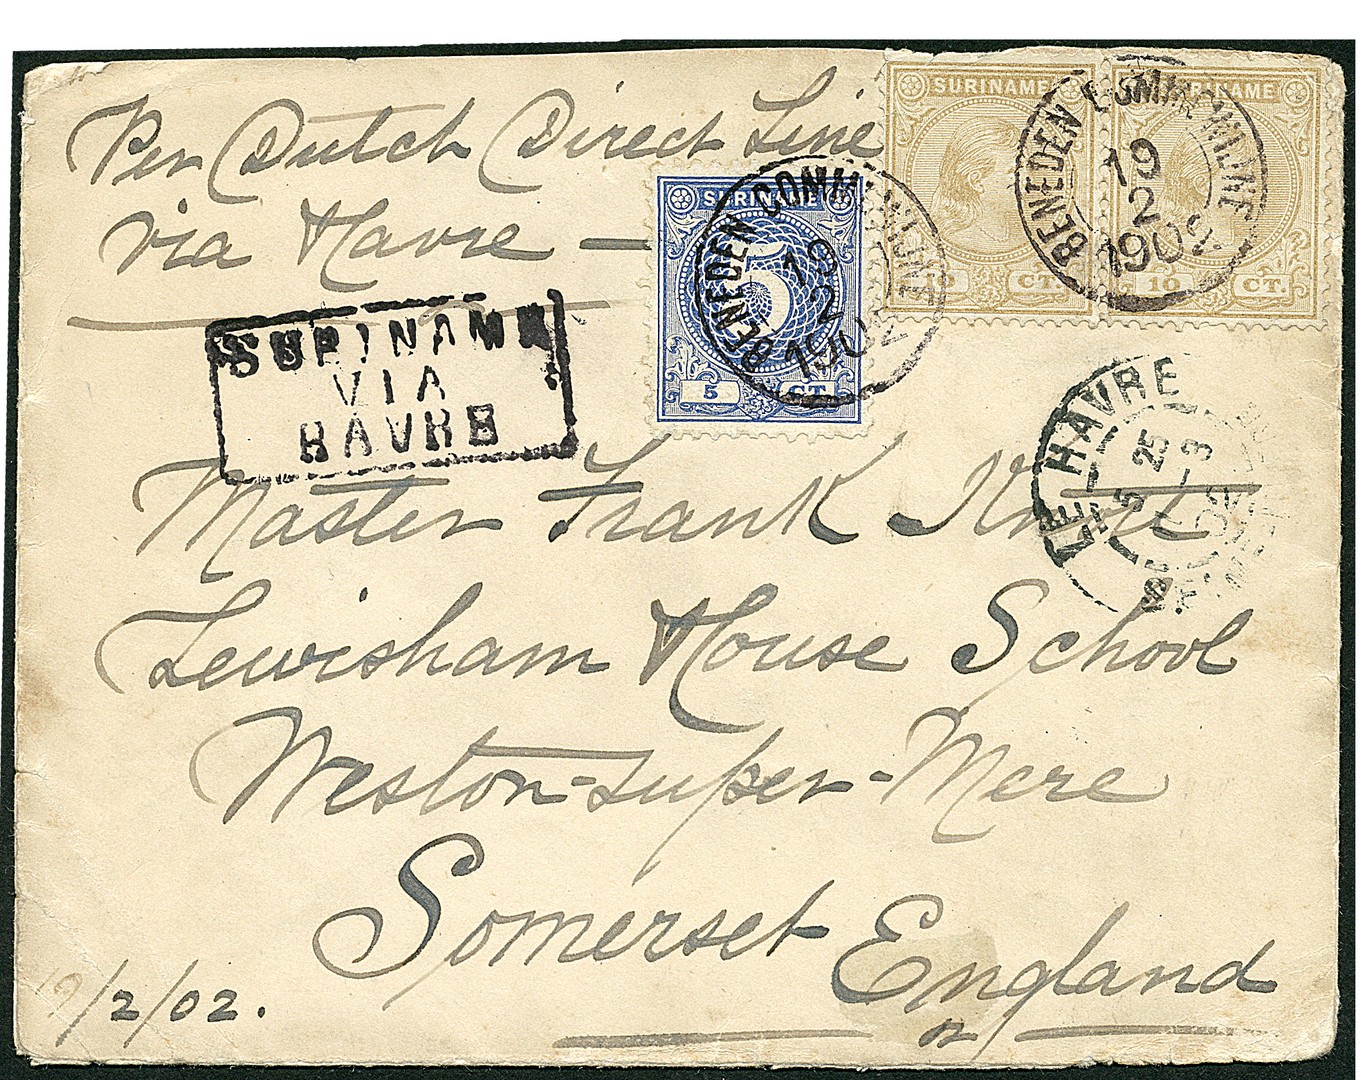 Per Dutch Direct Line
via Havre —
SURINAME
5
5 CT.
SURINAME
10 CT.
SURINAME
10 CT.
BENEDEN COMMEWIJNE
19
2
1902
BENEDEN COMMEWIJNE
19
2
1902
SURINAME
VIA
HAVRE
LE HAVRE
5 25
-3
02
Master Frank
Lewisham House School
Weston-super-Mere
Somerset
England
/2/02.